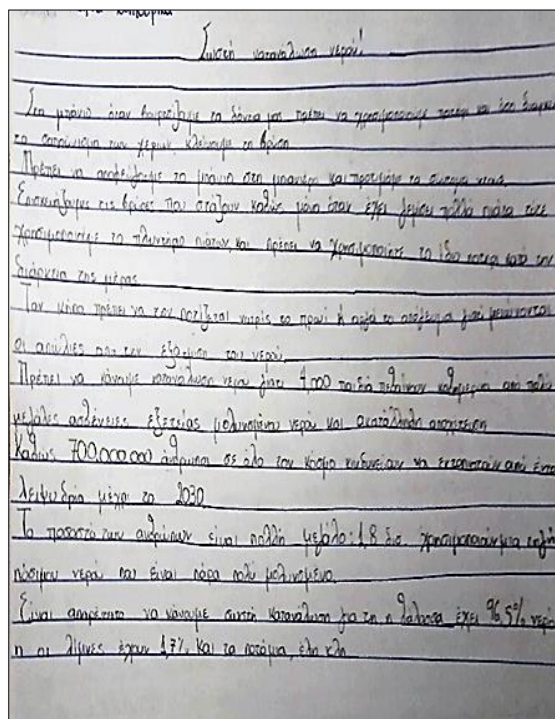 Σωστή κατανάλωση νερού!
Στο μπάνιο όταν βουρτσίζουμε τα δόντια μας πρέπει να χρησιμοποιούμε ποτήρι και όσο διαρκεί
το σαπούνισμα των χεριών, κλείνουμε τη βρύση
Πρέπει να αποφεύγουμε το μπάνιο στη μπανιέρα και προτιμάμε το σύντομο ντους.
Επισκευάζουμε τις βρύσες που στάζουν καθώς μόνο όταν έχει γεμίσει πολλά πιάτα τότε
χρησιμοποιούμε το πλυντήριο πιάτων, και πρέπει να χρησιμοποιείτε το ίδιο ποτήρι κατά την
διάρκεια της μέρας.
Τον κήπο πρέπει να τον ποτίζεται νωρίς το πρωί ή αργά το απόγευμα γιατί μειώνονται
οι απώλιες απο την εξάτμιση του νερού.
Πρέπει να κάνουμε κατανάλωση νερού γιατι 4.000 παιδιά πεθαίνουν καθημερινά από πολύ
μεγάλες ασθένειες εξετείας μολυσμένου νερού και ακατάλληλη αποχέτευση
Καθώς 700.000.000 άνθρωποι σε όλο τον κόσμο κινδυνεύουν να εκτοπιστούν από έντονη
λειψυδρία μέχρι το 2030
Το ποσοστό των ανθρώπων είναι πολλή μεγάλο: 1,8 δισ. χρησιμοποιούν μια πηγή
πόσιμου νερού που είναι πάρα πολύ μολυσμένο.
Είναι απαρέτητο να κάνουμε σωστή κατανάλωση για τη η θάλασσα έχει 96,5% νερό
η οι λίμνες έχουν 1,7% και τα ποτάμια, έλη κλπ